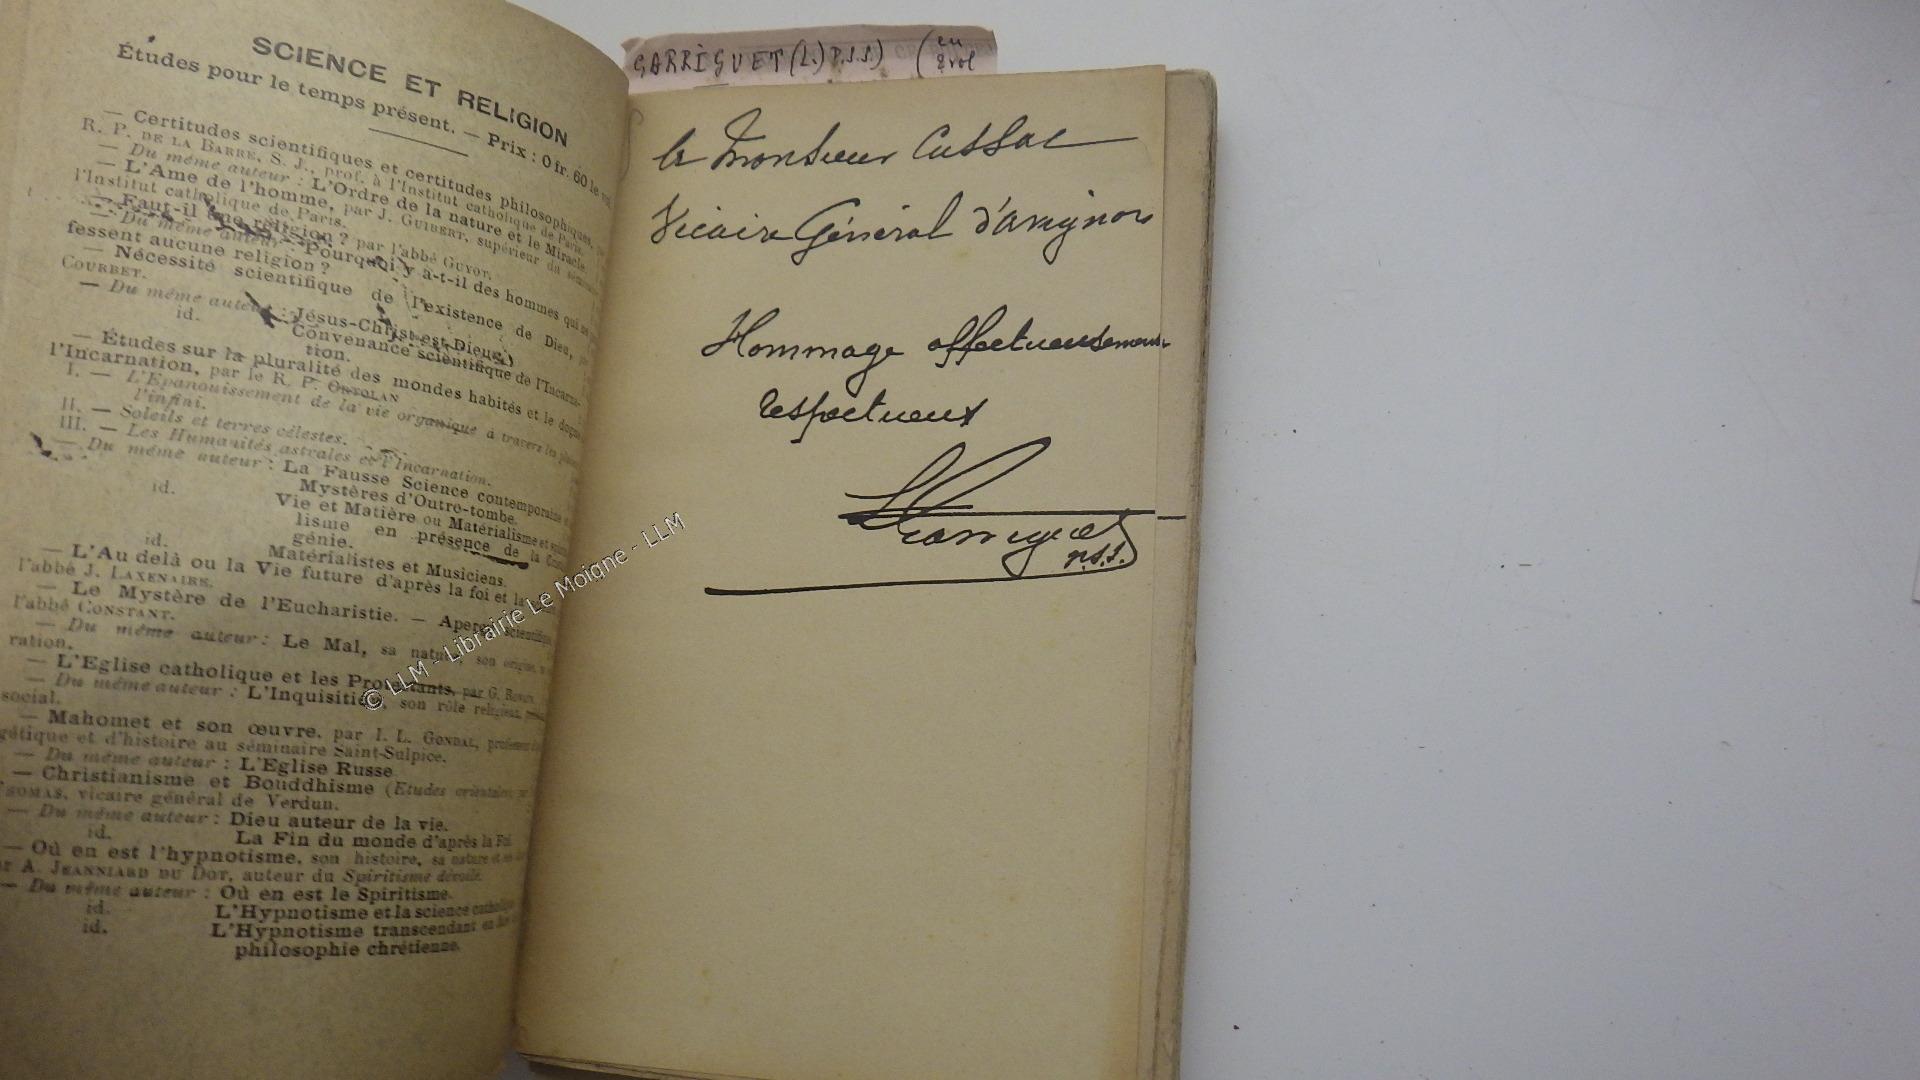 SCIENCE ET RELIGION
Études pour le temps présent. — Prix : 0 fr. 60 le vol.
— Certitudes scientifiques et certitudes philosophiques,
R. P. DE LA BARRE, S. J., prof. à l'Institut catholique de Paris.
— Du même auteur : L'Ordre de la nature et le Miracle.
— L'Ame de l'homme, par J. GUIBERT, supérieur du
l'Institut catholique de Paris.
— Faut-il une religion ? par l'abbé GUYOT.
— Du même auteur : Pourquoi y a-t-il des hommes qui ne
fessent aucune religion ?
— Nécessité scientifique de l'existence de Dieu,
COURBET.
— Du même auteur : Jésus-Christ est Dieu.
id. Convenance scientifique de l'Incarna-
tion.
— Études sur la pluralité des mondes habités et le dogme
l'Incarnation, par le R. P. ORTOLAN
I. — L'Epanouissement de la vie organique à travers les
l'infini.
II. — Soleils et terres célestes.
III. — Les Humanités astrales et l'Incarnation.
— Du même auteur : La Fausse Science contemporaine
Mystères d'Outre-tombe.
id. Vie et Matière ou Matérialisme et
lisme en présence de la
génie.
id. Matérialistes et Musiciens.
— L'Au delà ou la Vie future d'après la foi et la
l'abbé J. LAXENAIRE.
— Le Mystère de l'Eucharistie. — Aperçu scientifique,
l'abbé CONSTANT.
— Du même auteur : Le Mal, sa nature, son origine,
ration.
— L'Eglise catholique et les Protestants, par G. ROMAIN.
— Du même auteur : L'Inquisition, son rôle religieux,
social.
— Mahomet et son œuvre, par I. L. GONDAL, professeur
gétique et d'histoire au séminaire Saint-Sulpice.
— Du même auteur : L'Eglise Russe
— Christianisme et Bouddhisme (Etudes orientales,
THOMAS, vicaire général de Verdun.
— Du même auteur : Dieu auteur de la vie.
id. La Fin du monde d'après la Foi
— Où en est l'hypnotisme, son histoire, sa nature et
A. JEANNIARD DU DOT, auteur du Spiritisme dévoilé.
— Du même auteur : Où en est le Spiritisme.
id. L'Hypnotisme et la science catholique
id. L'Hypnotisme transcendant en
philosophie chrétienne.
GARRIGUET (L.) P.S.S.) (en
2 vol
à Monsieur Cussac
Vicaire Général d'Avignon
Hommage affectueusement
respectueux
L Garriguet
p.s.s.
© LLM - Librairie Le Moigne - LLM